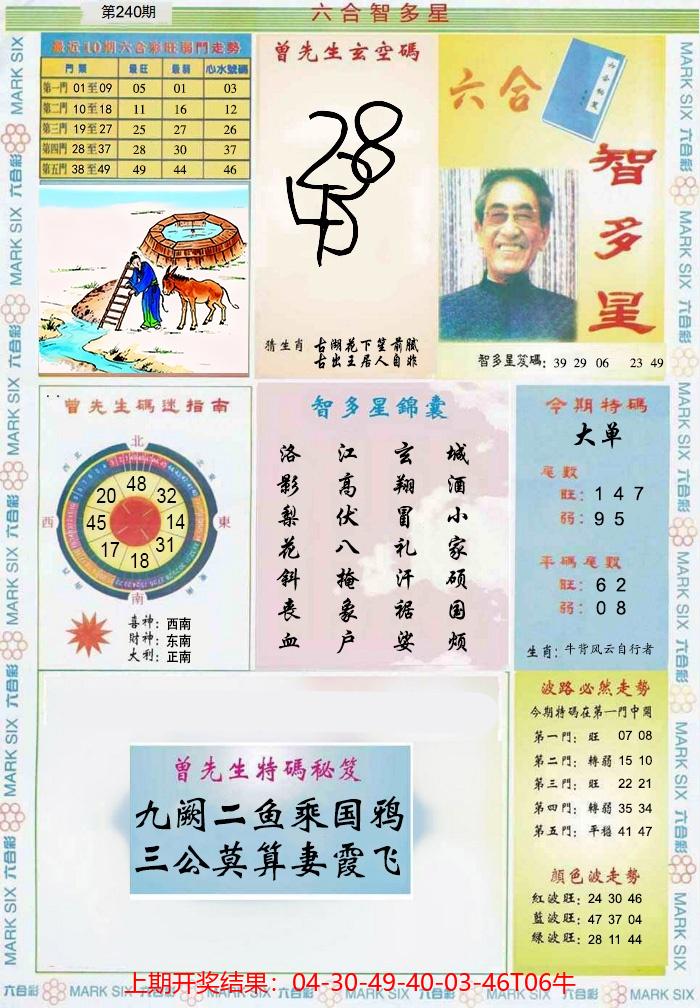 第240期
六合智多星
最近10期六合彩旺弱門走勢
門類 最旺 最弱 心水號碼
第一門 01至09 05 01 03
第二門 10至18 11 16 12
第三門 19至27 25 27 26
第四門 28至37 28 30 37
第五門 38至49 49 44 46
曾先生玄空碼
28
猜生肖
古湖花下笙前膩
古出王居人自非
六合
六合秘笈
智多星
智多星笈碼: 39 29 06 23 49
曾先生碼迷指南
北
東
南
西
48
32
14
31
18
17
45
20
喜神: 西南
财神: 东南
大利: 正南
智多星錦囊
洛 江 玄 城
影 高 翔 酒
梨 伏 冒 小
花 八 礼 家
斜 掩 汗 硕
丧 象 裾 国
血 户 娑 烦
今期特碼
大单
尾數
旺: 1 4 7
弱: 9 5
平碼尾數
旺: 6 2
弱: 0 8
生肖: 牛背风云自行者
曾先生特碼秘笈
九阙二鱼乘国鸦
三公莫算妻霞飞
波路必然走勢
今期特碼在第一門中開
第一門: 旺 07 08
第二門: 轉弱 15 10
第三門: 旺 22 21
第四門: 轉弱 35 34
第五門: 平穩 41 47
顏色波走勢
紅波旺: 24 30 46
藍波旺: 47 37 04
绿波旺: 28 11 44
上期开奖结果：04-30-49-40-03-46T06牛
六合彩 MARK SIX 六合彩 MARK SIX 六合彩 MARK SIX 六合彩 MARK SIX 六合彩